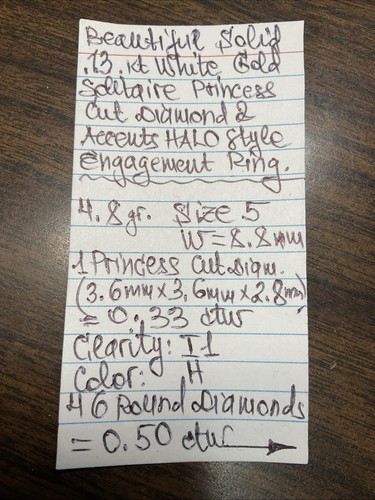 Beautiful Solid
.13 kt White Gold
Solitaire Princess
Cut Diamond &
Accents HALO Style
Engagement Ring.
4.8gr. Size 5
W=8.8mm
.1 Princess Cut.Diam.
(3.6mm×3.6mm×2.8mm)
= 0.33 ctw
Clearity: I1
Color: H
46 Round Diamonds
= 0.50 ctw